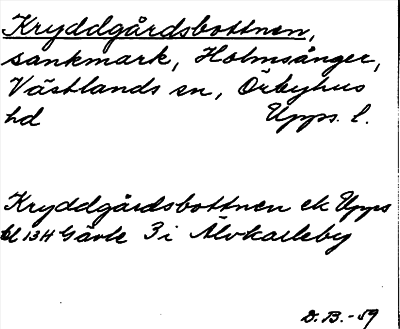 Kryddgårdsbottnen,
sankmark, Holmsånger,
Västlands sn, Örbyhus
hd Upps. l.
Kryddgårdsbottnen ek Upps
bl 13H Gävle 3 i Älvkarleby
D. B. -59